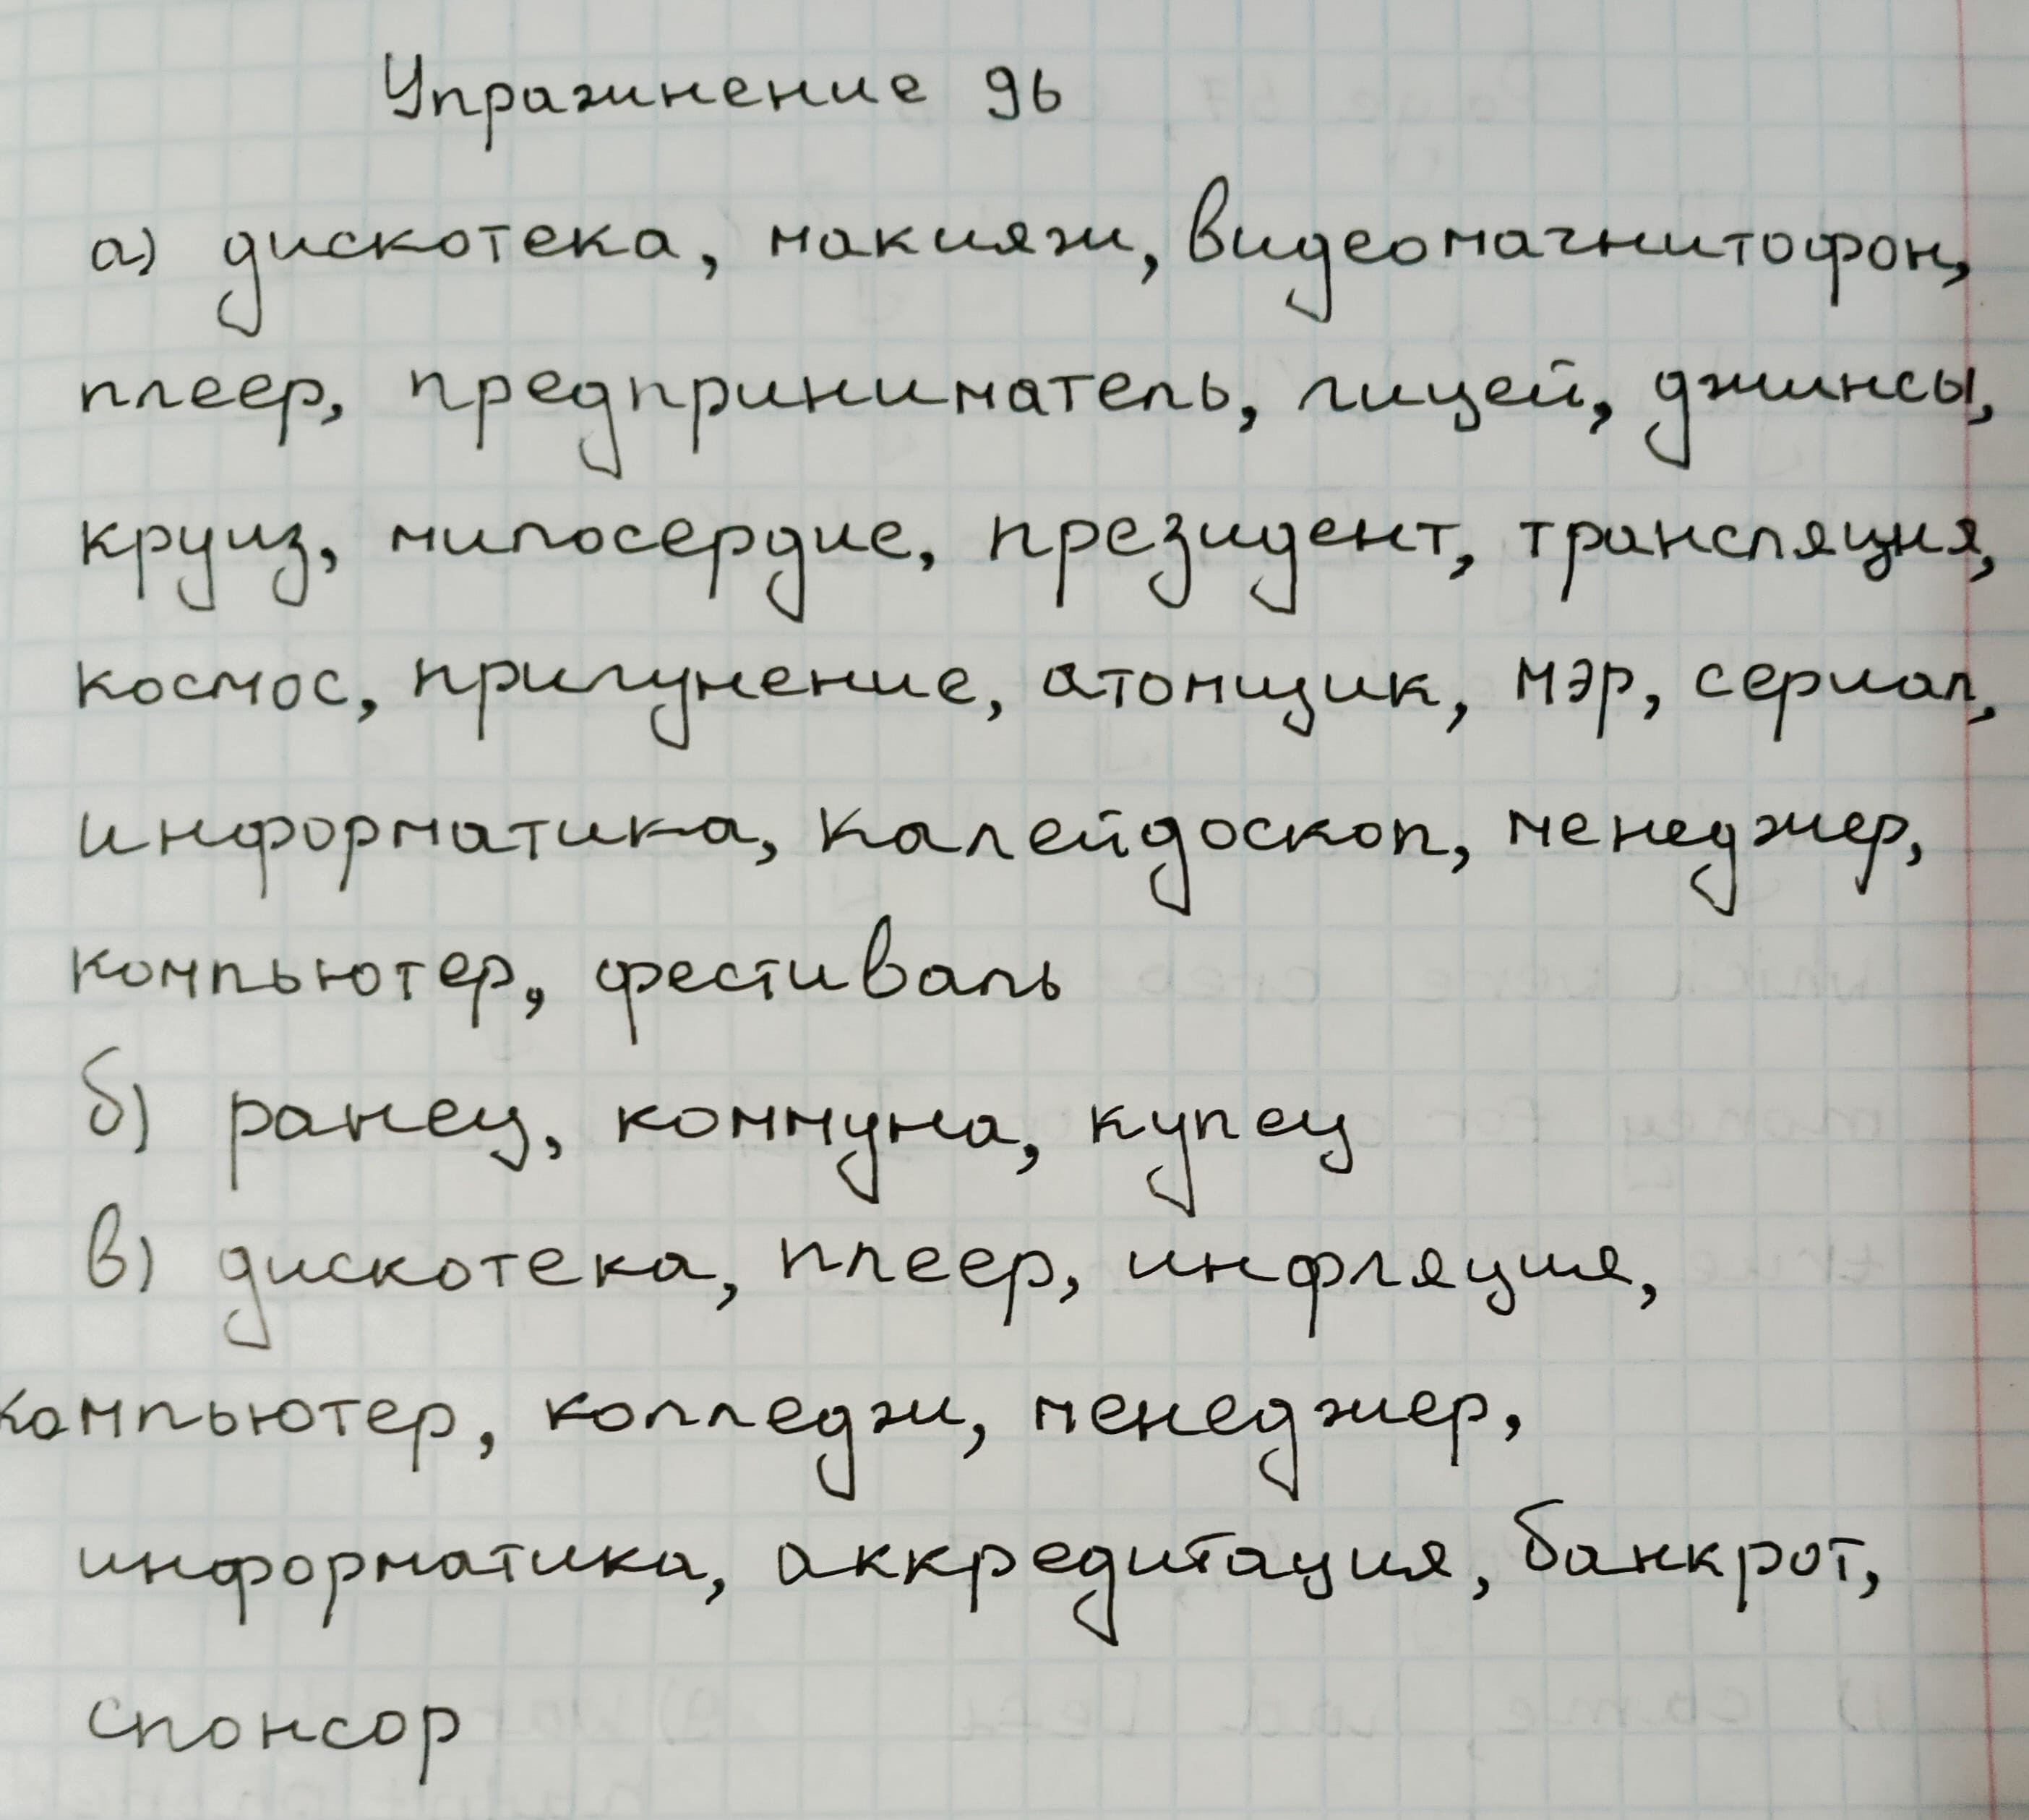 Упражнение 96
а) дискотека, макияж, видеомагнитофон,
плеер, предприниматель, лицей, джинсы,
круиз, милосердие, президент, трансляция,
космос, прилунение, атомщик, мэр, сериал,
информатика, калейдоскоп, менеджер,
компьютер, фестиваль
б) ранец, коммуна, купец
в) дискотека, плеер, инфляция,
компьютер, колледж, менеджер,
информатика, аккредитация, банкрот,
спонсор